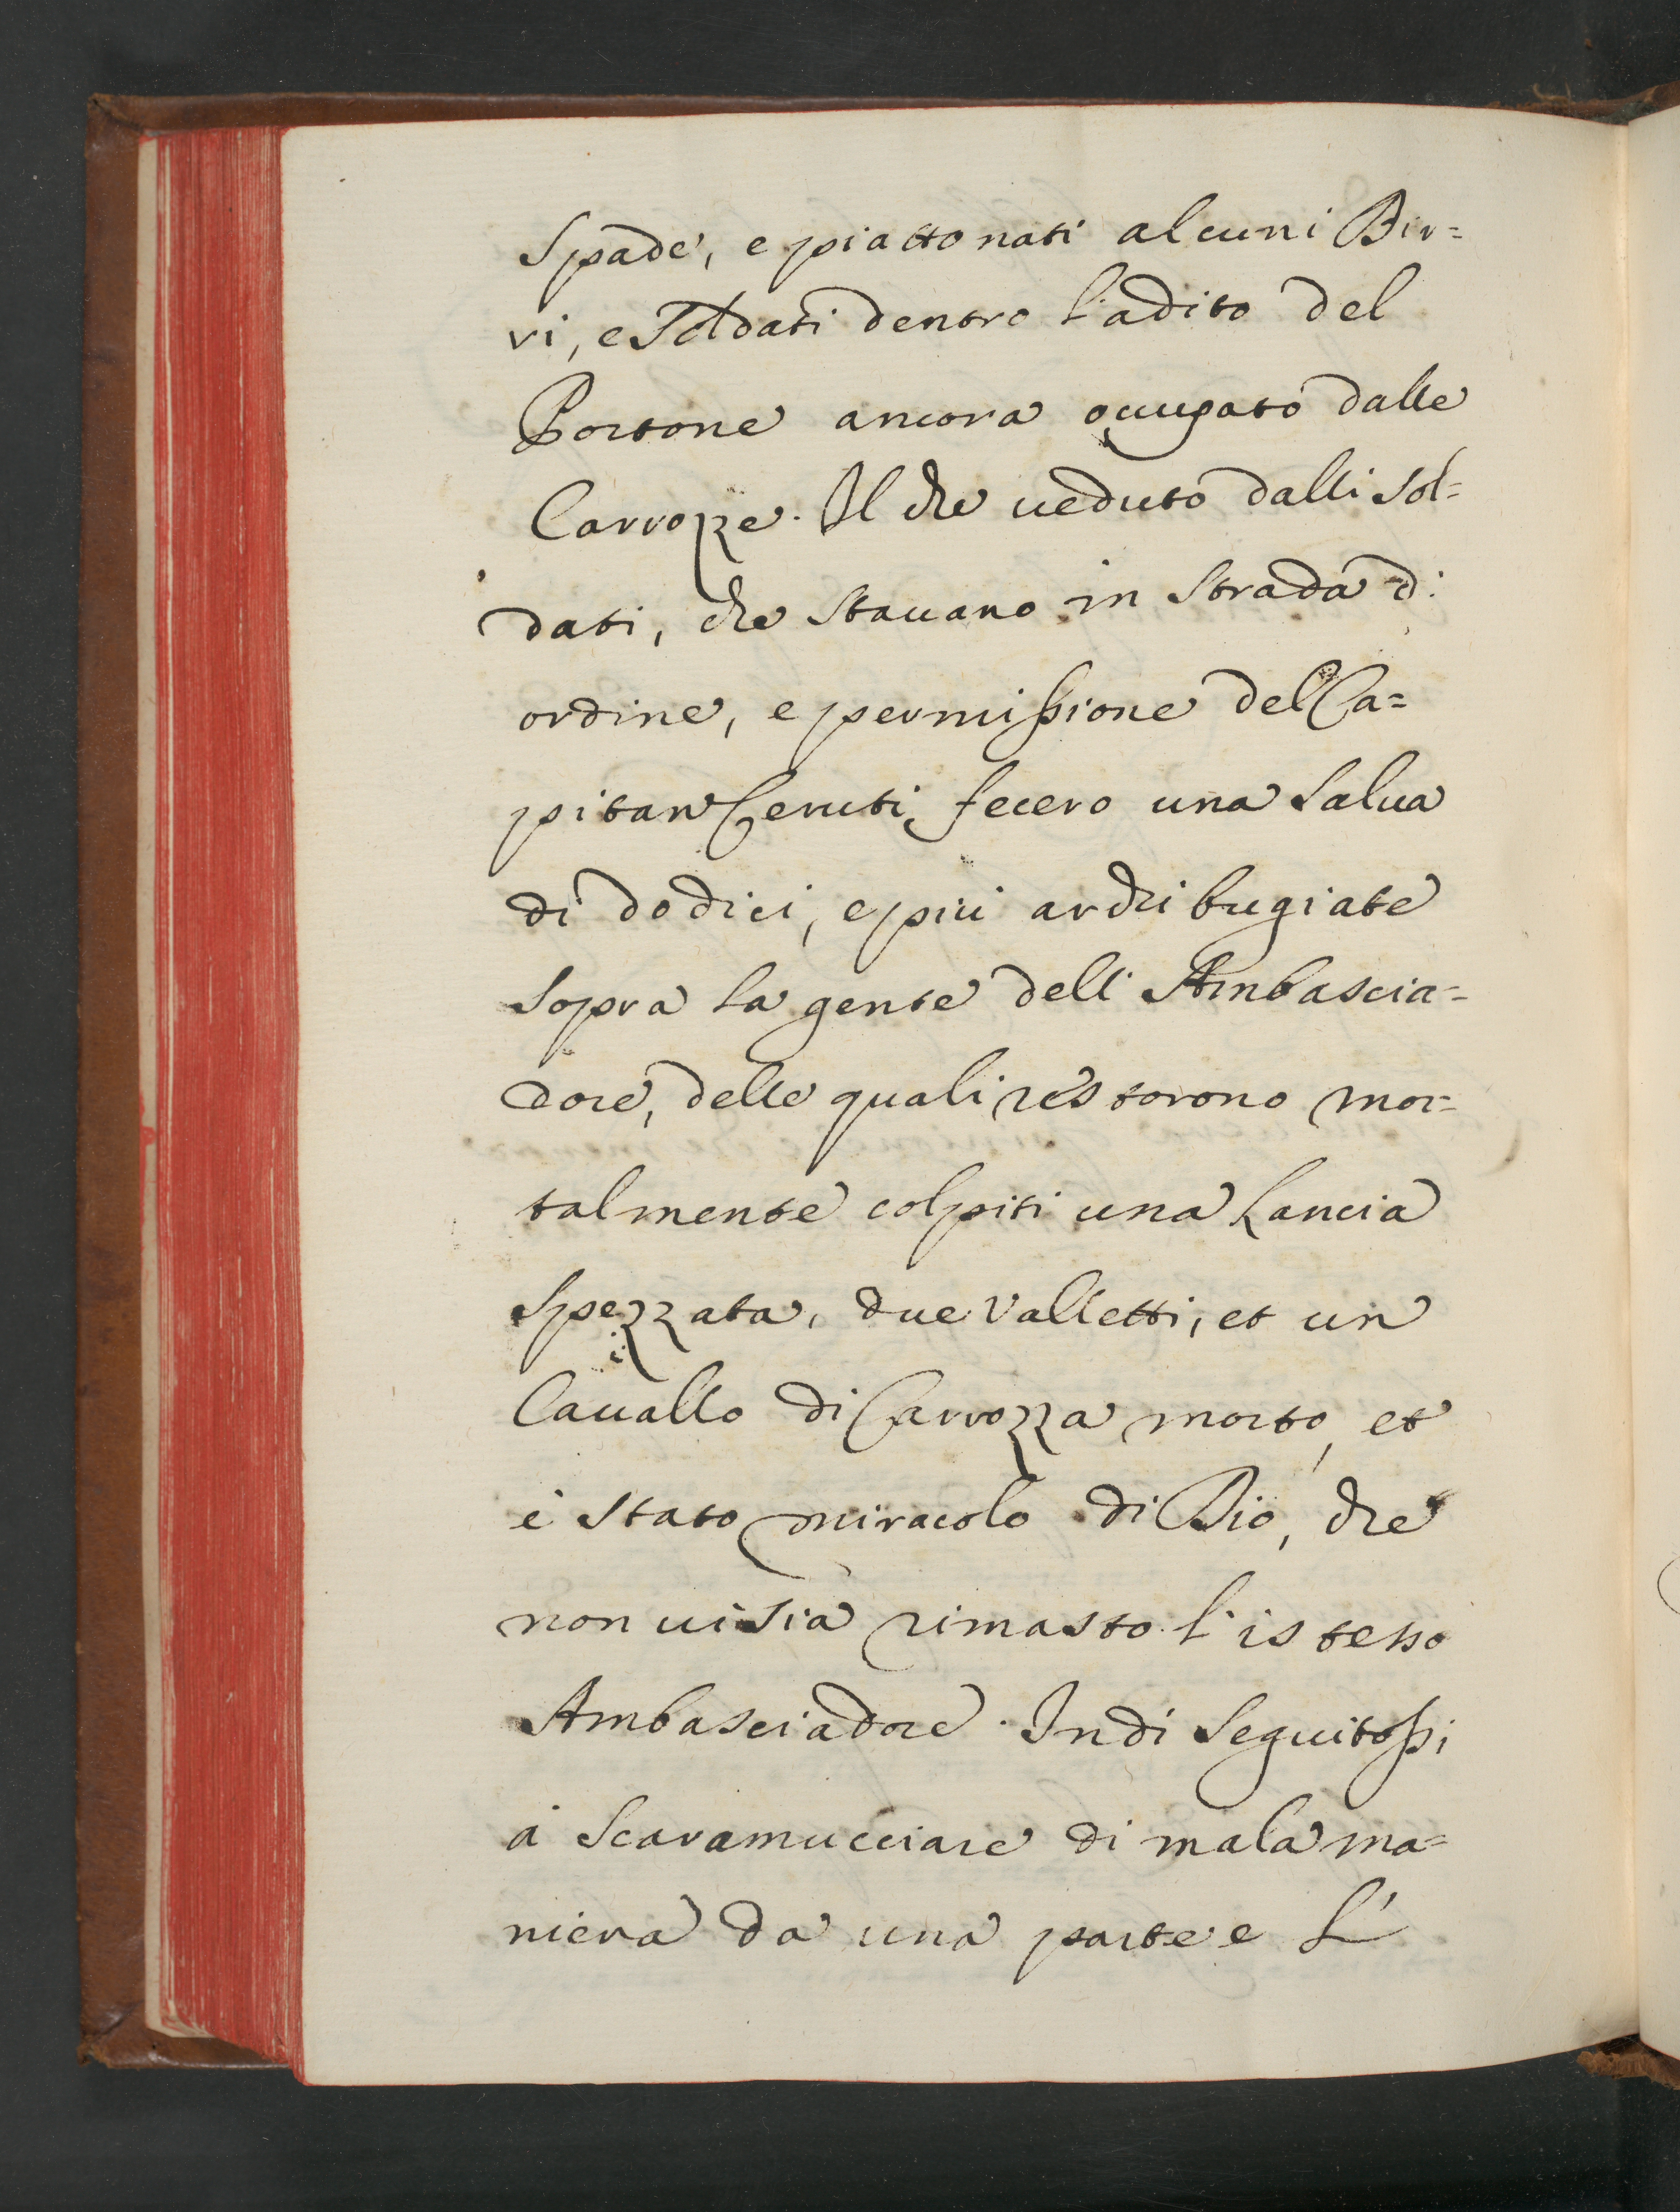 Spade, e piattonati alcuni Bir=
ri, e Soldati dentro l'adito del
Portone ancora occupato dalle
Carrozze. Il che ueduto dalli sol=
dati, che stauano in strada d'
ordine, e permissione del Ca=
pitan Ceruti, fecero una salua
di dodici, e più archibugiate
sopra la gente dell' Ambascia=
dore, delle quali restorono mor=
talmente colpiti una Lancia
spezzata, due Valletti, et un
Cauallo di Carrozza morto, et
è stato miracolo di Dio, che
non ui sia rimasto l'istesso
Ambasciadore. Indi seguitossi
à scaramucciare di mala ma=
niera da una parte e l'